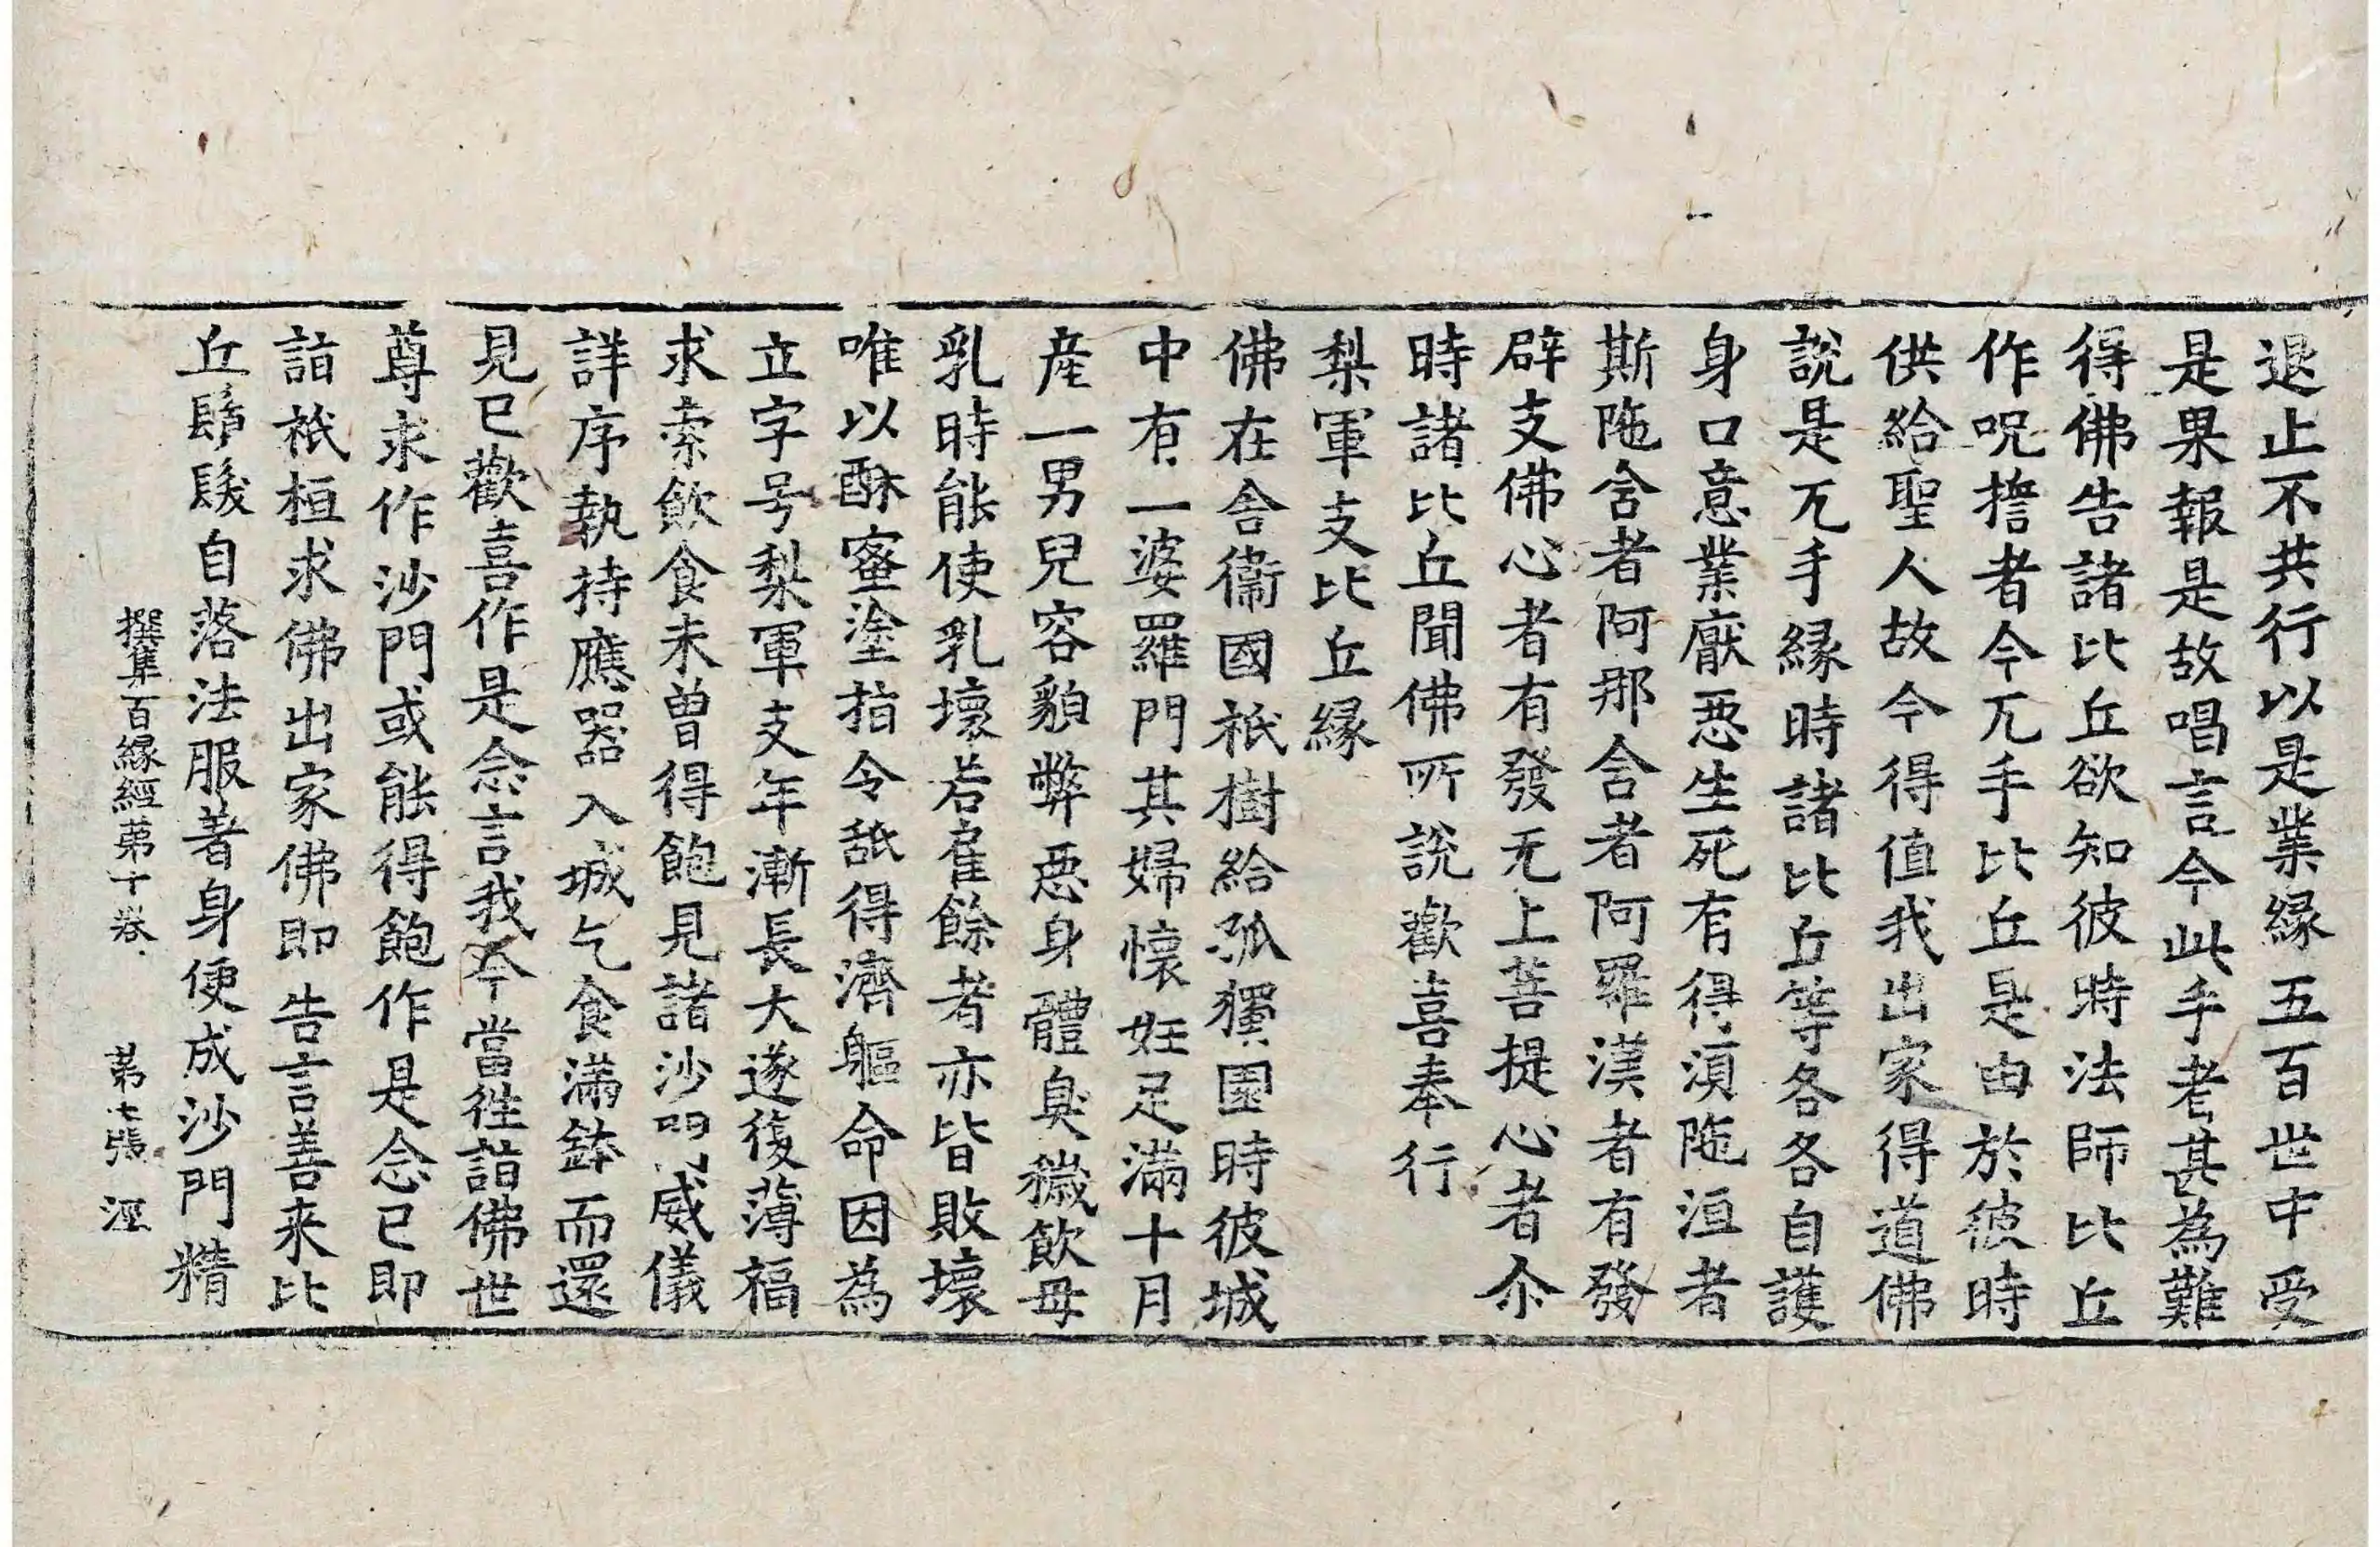 退止不共行以是業縁五百世中受
是果報是故唱言今此手者甚為難
得佛告諸比丘欲知彼時法師比丘
作呪擔者今兀手比丘是由於彼時
供給聖人故今得值我出家得道佛
說是兀手縁時諸比丘等各各自護
身口意業厭惡生死有得湏陁洹者
斯陁含者阿那含者阿羅漢者有發
辟支佛心者有發无上菩提心者尒
時諸比丘聞佛所說歡喜奉行
梨軍支比丘縁
佛在舍衞國祇樹給孤獨園時彼城
中有一婆羅門其婦懷妊足滿十月
産一男兒容貌弊惡身體臭穢飲母
乳時能使乳壞若雇餘者亦皆敗壞
唯以酥蜜塗指令舐得濟軀命因為
立字号梨軍支年漸長大遂復薄福
求索飲食未曽得飽見諸沙門威儀
詳序執持應器入城乞食滿鉢而還
見已歡喜作是念言我今當徃詣佛世
尊求作沙門或能得飽作是念已即
詣祇桓求佛出家佛即告言善来比
丘鬚髮自落法服著身便成沙門精
撰集百縁經第十卷 第七張 涇